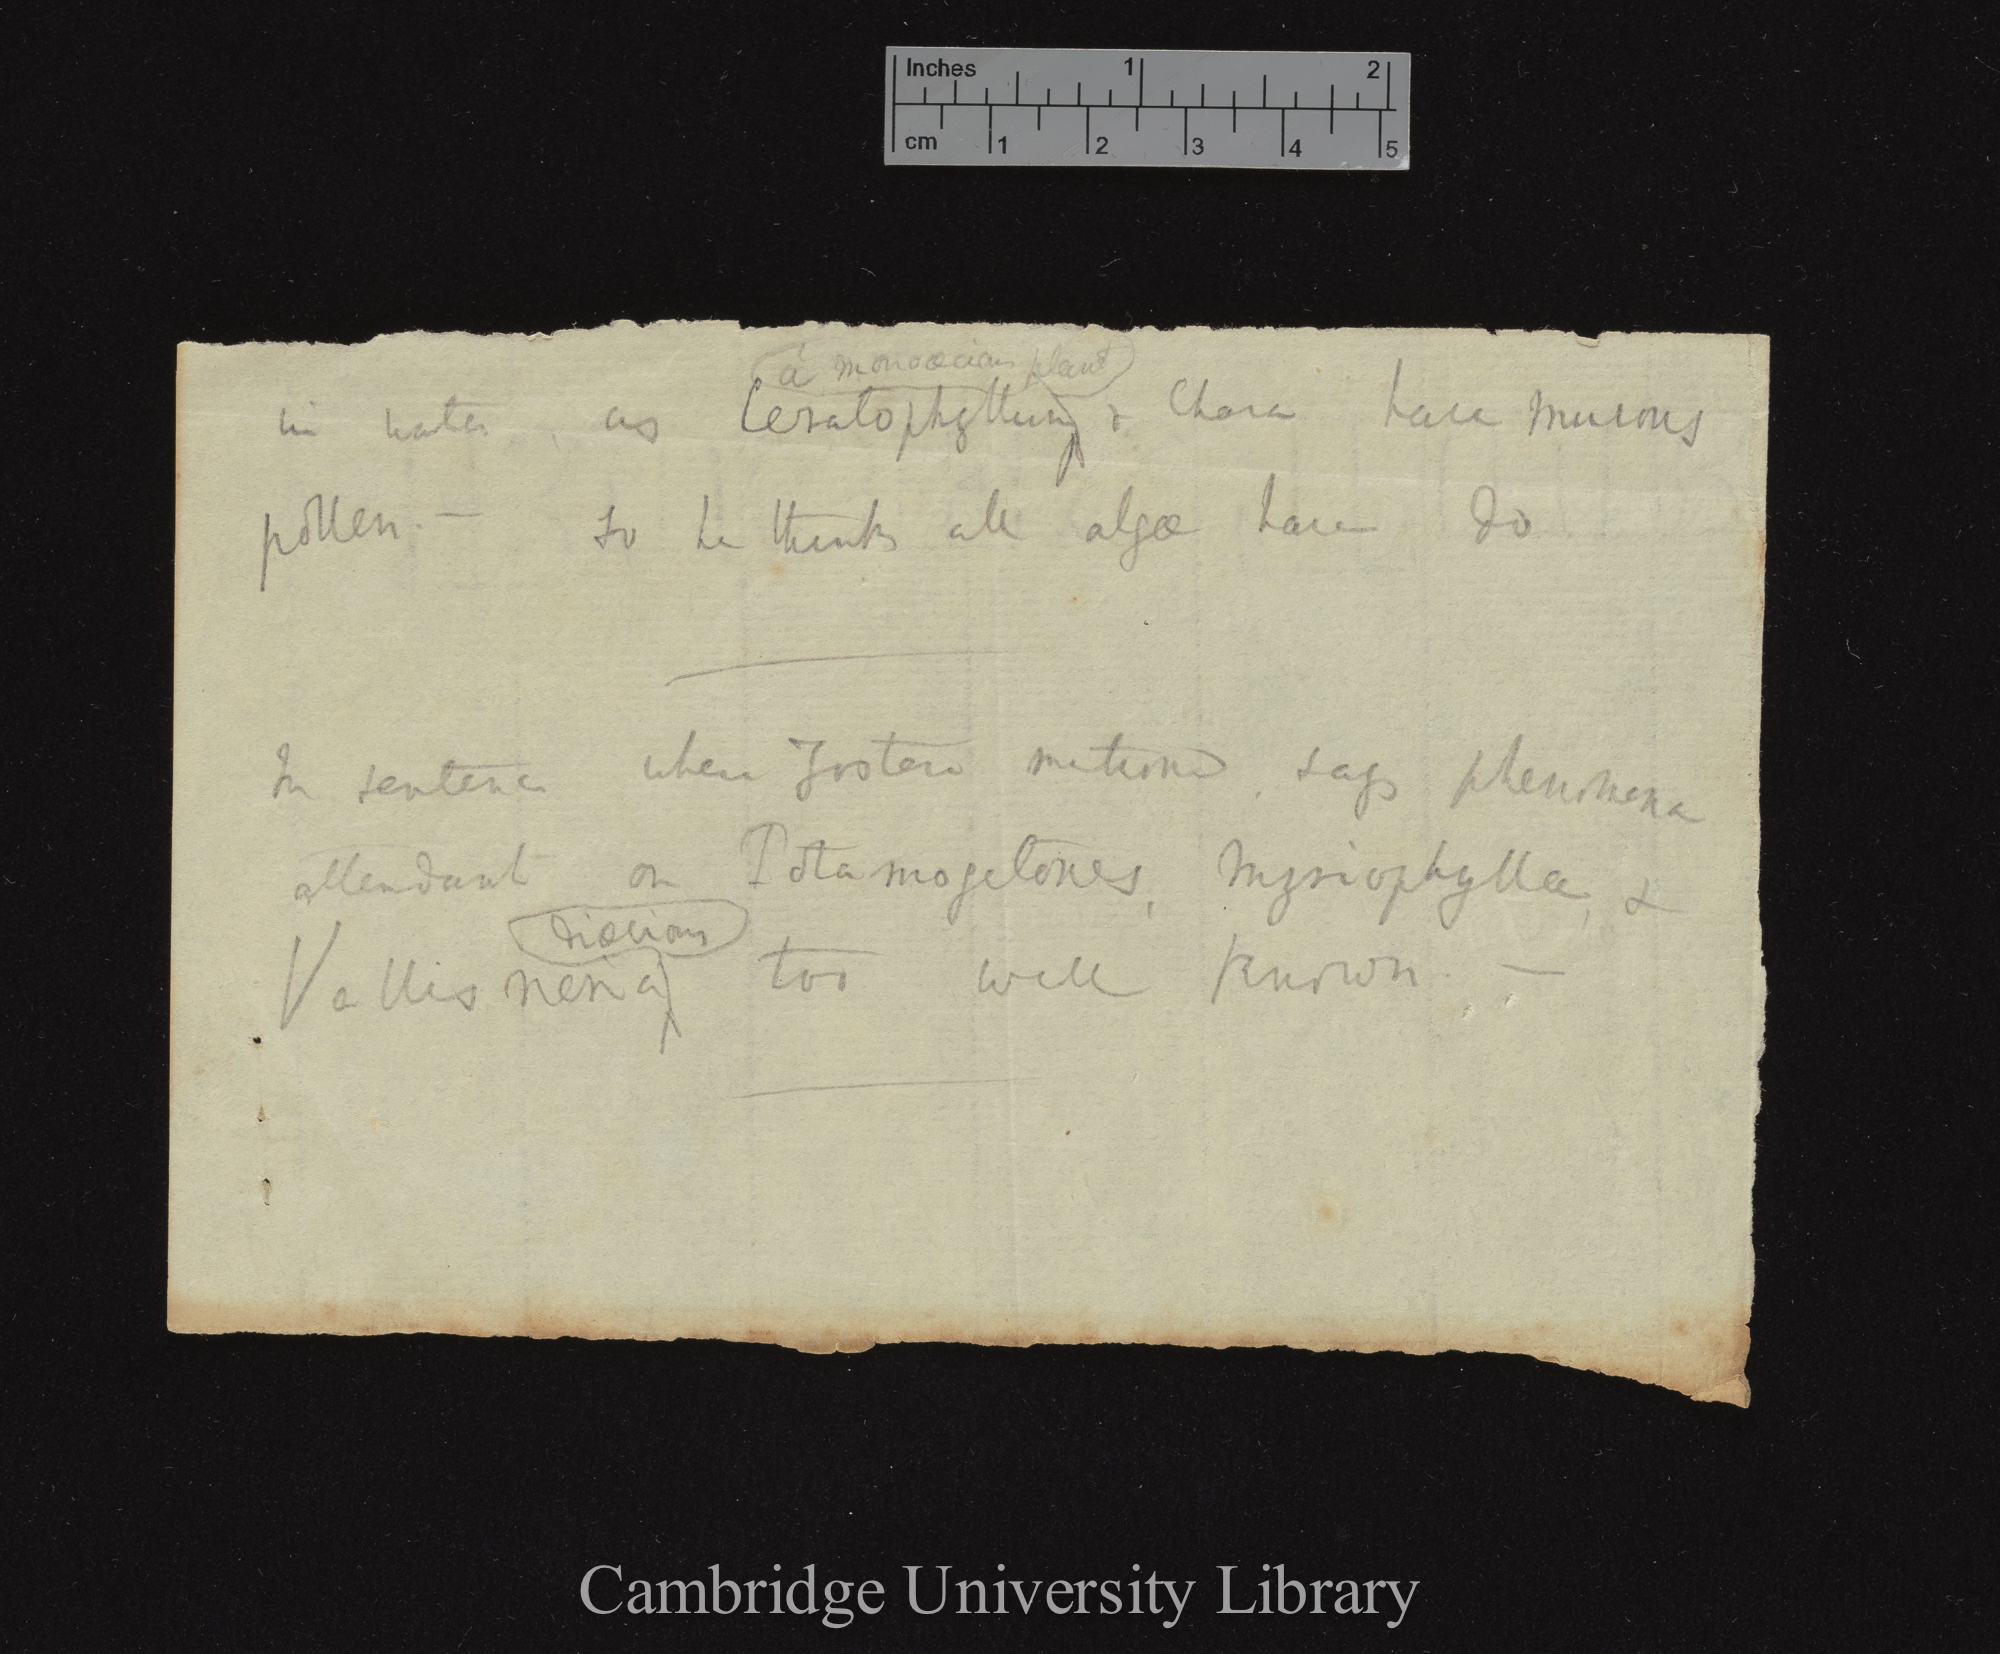 Inches 1 2
cm 1 2 3 4 5
a monoœcious plant
in water, as Ceratophyllum, & Chara have mucous
pollen. — So he thinks all algæ have do
In sentence when Zostera mentioned, says phenomena
attendant on Potamogetones, Myriophyllæ, &
diœcious
Vallisneria, too well known. —
Cambridge University Library